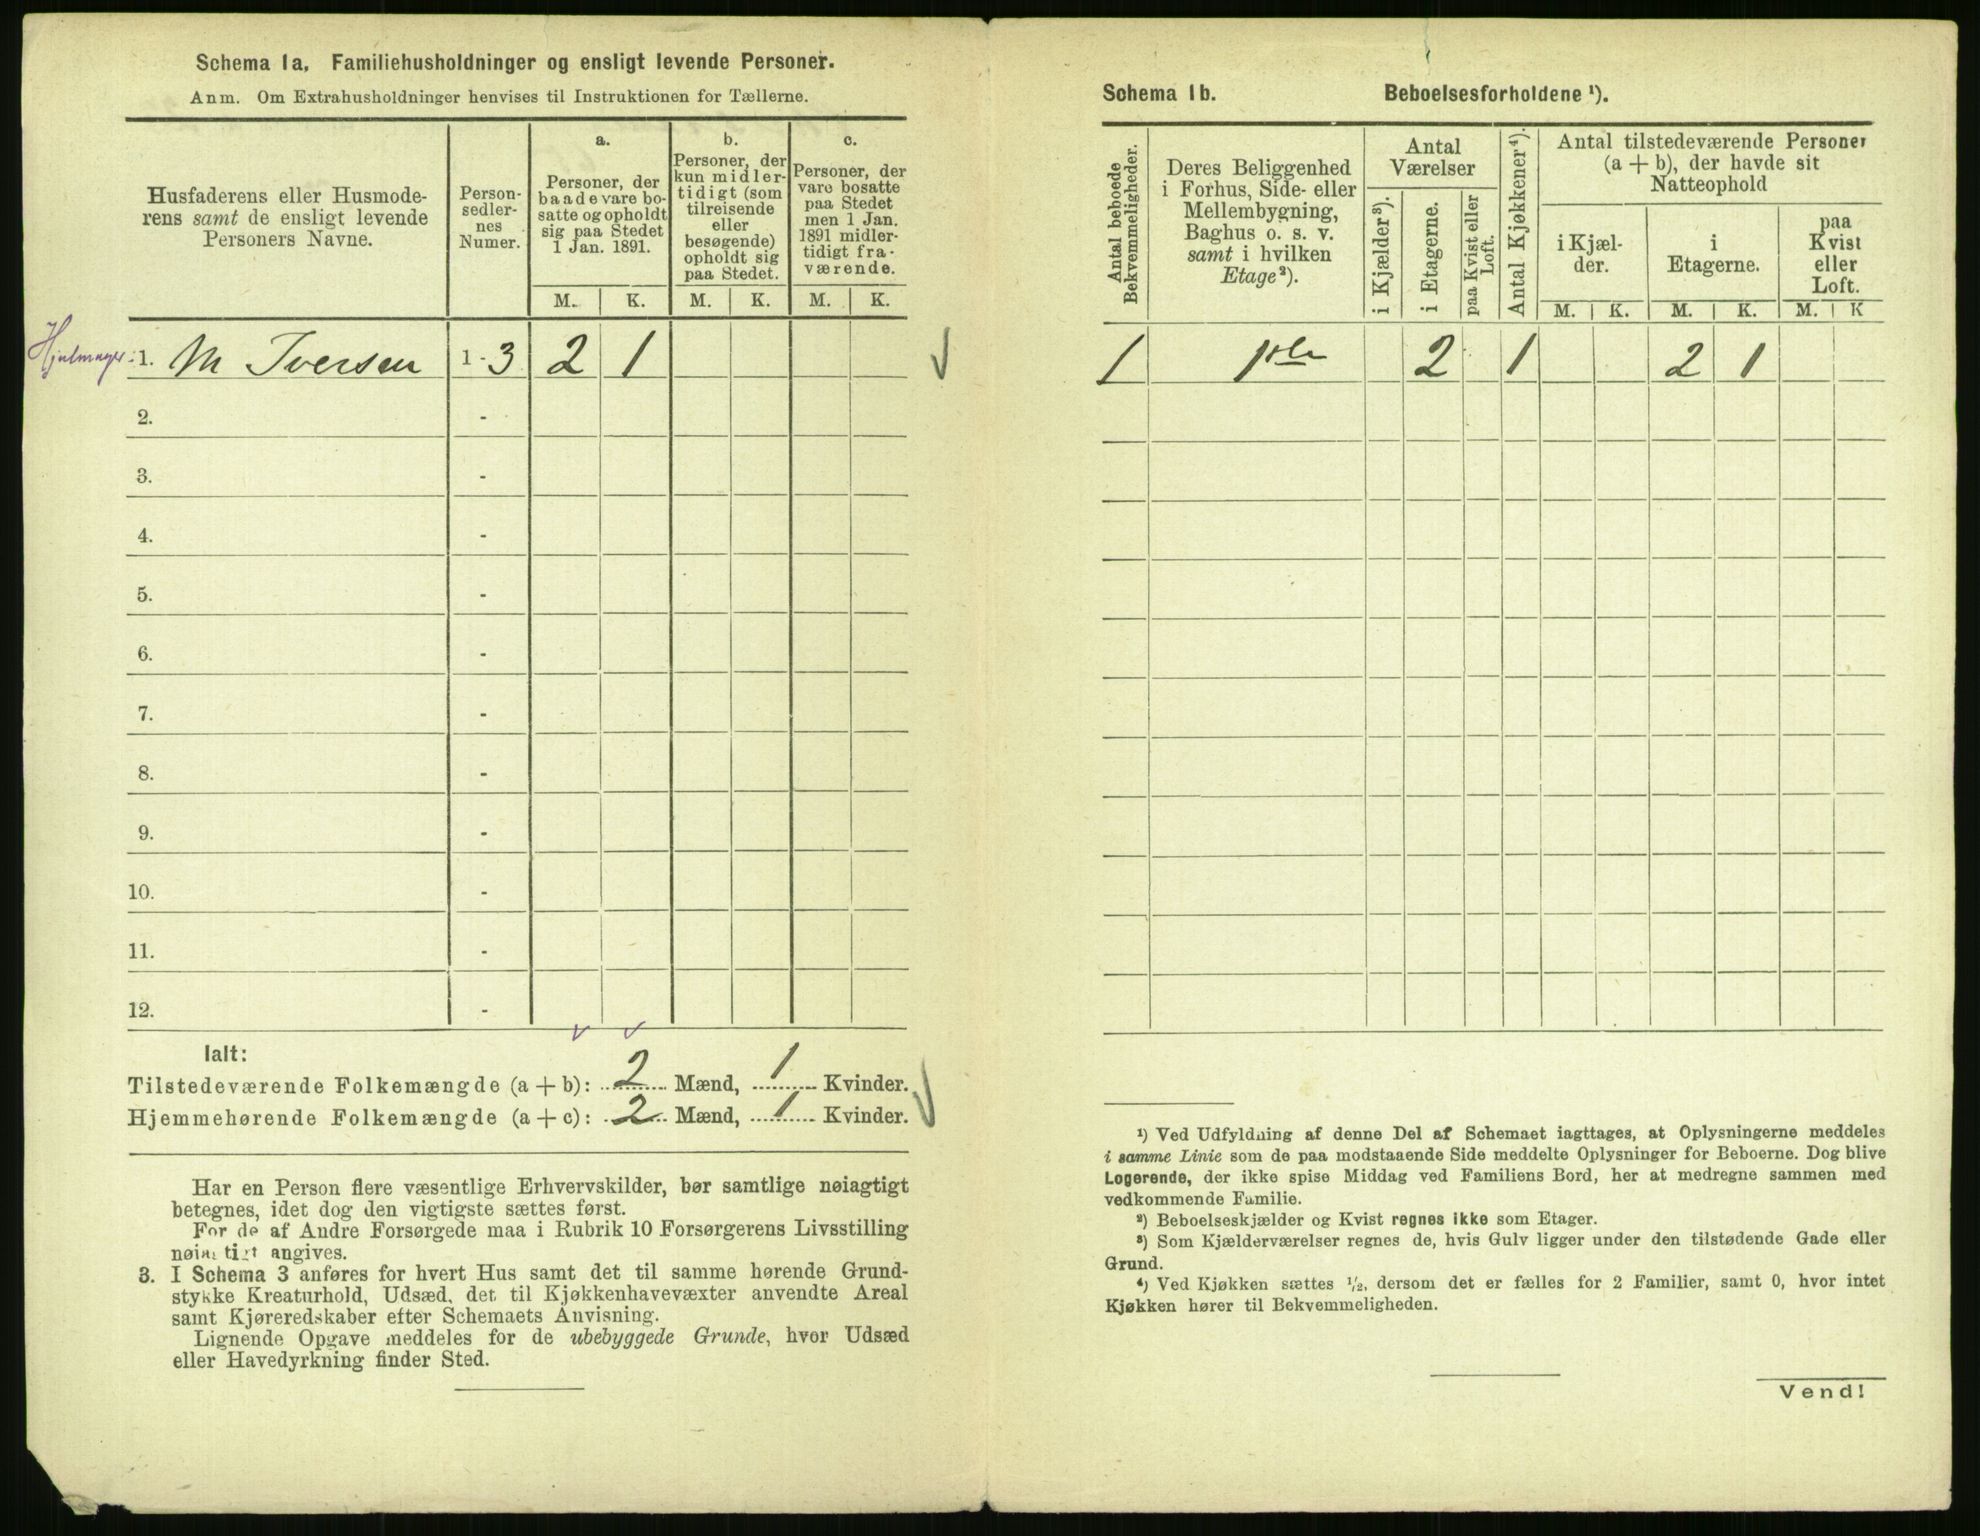 Schema 1a. Familiehusholdninger og ensligt levende Personer.
Anm. Om Extrahusholdninger henvises til Instruktionen for Tællerne.
Husfaderens eller Husmode-
rens samt de ensligt levende
Personers Navne.
Person-
sedler-
nes
Numer.
a.
Personer, der
baade vare bo-
satte og opholdt
sig paa Stedet
1 Jan. 1891.
b.
Personer, der
kun midler-
tidigt (som
tilreisende
eller
besøgende)
opholdt sig
paa Stedet.
c.
Personer, der
vare bosatte
paa Stedet
men 1 Jan.
1891 midler-
tidigt fra-
værende.
M. K. M. K. M. K.
1. M Iversen 1 - 3 2 1
2. -
3. -
4. -
5. -
6. -
7. -
8. -
9. -
10. -
11. -
12. -
Ialt:
Tilstedeværende Folkemængde (a + b): 2 Mænd, 1 Kvinder.
Hjemmehørende Folkemængde (a + c): 2 Mænd, 1 Kvinder.
Har en Person flere væsentlige Erhvervskilder, bør samtlige nøiagtigt
betegnes, idet dog den vigtigste sættes først.
For de af Andre Forsørgede maa i Rubrik 10 Forsørgerens Livsstilling
nøiagtigt angives.
3. I Schema 3 anføres for hvert Hus samt det til samme hørende Grund-
stykke Kreaturhold, Udsæd, det til Kjøkkenhavevæxter anvendte Areal
samt Kjøreredskaber efter Schemaets Anvisning.
Lignende Opgave meddeles for de ubebyggede Grunde, hvor Udsæd
eller Havedyrkning finder Sted.
Schema 1b. Beboelsesforholdene ¹).
Antal beboede
Bekvemmeligheder.
Deres Beliggenhed
i Forhus, Side- eller
Mellembygning,
Baghus o. s. v.
samt i hvilken
Etage²).
Antal
Værelser
i Kjælder³).
i Etagerne.
paa Kvist eller
Loft.
Antal Kjøkkener⁴).
Antal tilstedeværende Personer
(a + b), der havde sit
Natteophold
i Kjæl-
der.
i
Etagerne.
paa
Kvist
eller
Loft.
M. K. M. K. M. K
1 1ste 2 1 2 1
¹) Ved Udfyldning af denne Del af Schemaet iagttages, at Oplysningerne meddeles
i samme Linie som de paa modstaaende Side meddelte Oplysninger for Beboerne. Dog blive
Logerende, der ikke spise Middag ved Familiens Bord, her at medregne sammen med
vedkommende Familie.
²) Beboelseskjælder og Kvist regnes ikke som Etager.
³) Som Kjælderværelser regnes de, hvis Gulv ligger under den tilstødende Gade eller
Grund.
⁴) Ved Kjøkken sættes ½, dersom det er fælles for 2 Familier, samt 0, hvor intet
Kjøkken hører til Bekvemmeligheden.
Vend!